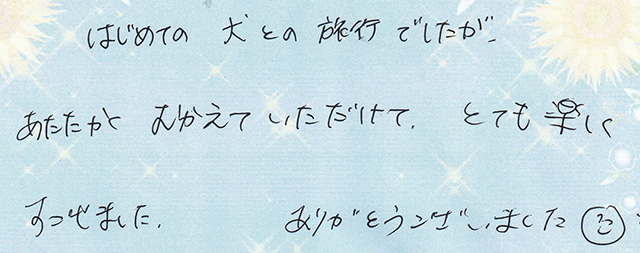 はじめての 犬との 旅行 でしたが、
あたたかく むかえて いただけて、 とても 楽しく
すごせました。 ありがとうございました